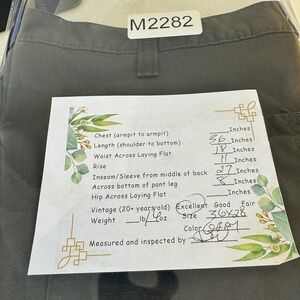 M2282
Chest (armpit to armpit) Inches
Length (shoulder to bottom) 36 Inches
Waist Across Laying Flat 18 Inches
Rise 11 Inches
Inseam/Sleeve from middle of back 27 Inches
Across bottom of pant leg 8 Inches
Hip Across Laying Flat Inches
Vintage (20+ years old) Excellent Good Fair
Weight lb/ oz Size 36x28
Color
Measured and inspected by